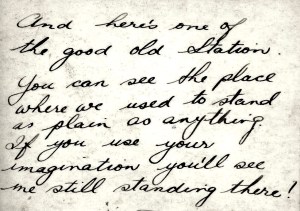 And here's one of
the good old Station.
You can see the place
where we used to stand
as plain as anything.
If you use your
imagination you'll see
me still standing there!